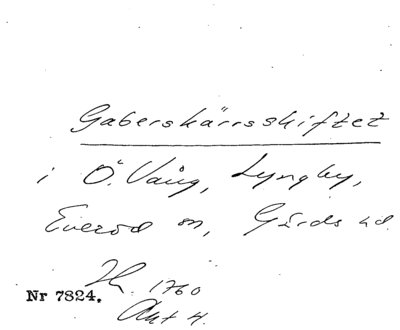 Gaberskärrsskiftet
i Ö. Vång, Lyngby,
Everöd sn, Gärds hd.
Nr 7824.
1760
Akt 4.